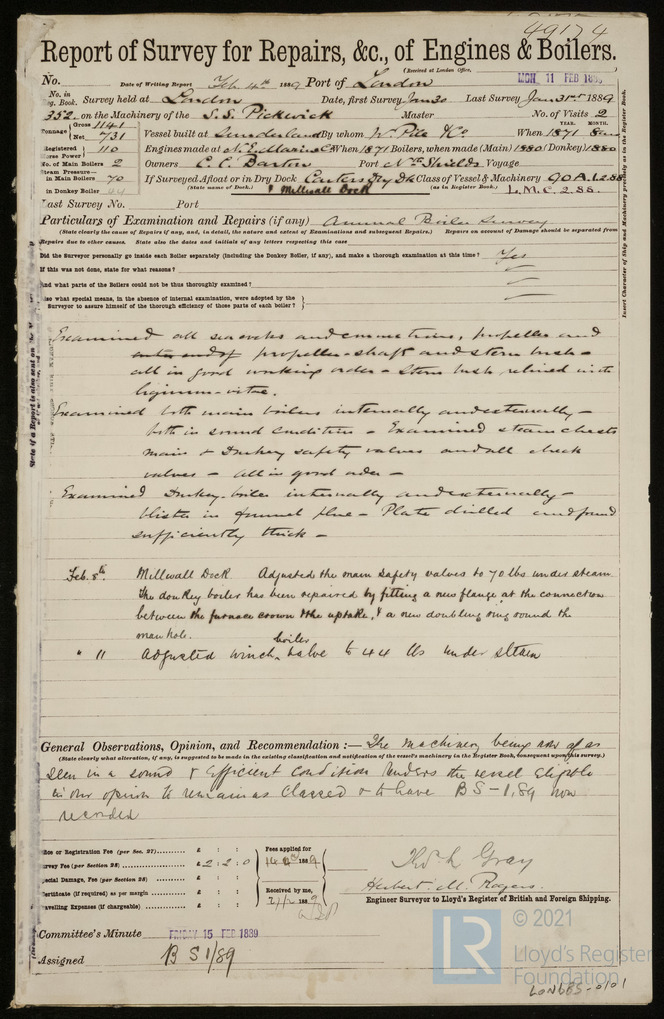 49174
Report of Survey for Repairs, &c., of Engines & Boilers.
(Received at London Office,
No. Date of Writing Report Feb 4th 1889 Port of London MON 11 FEB 1889
No. in Reg. Book. Survey held at London Date, first Survey Jan 30 Last Survey Jan 31st 1889
352. on the Machinery of the S.S. Pickwick Master No. of Visits 2
Tonnage Gross 1141 Net 731 Vessel built at Sunderland By whom Wm Pile & Co When 1871 YEAR. MONTH. 8
Registered Horse Power 110 Engines made at N.E. Marine Co When 1871 Boilers, when made (Main) 1880 (Donkey) 1880
No. of Main Boilers 2 Owners C. C. Barton Port Nth Shields Voyage
Steam Pressure— in Main Boilers 70 If Surveyed Afloat or in Dry Dock Class of Vessel & Machinery 90 A.1.2.88
in Donkey Boiler 44 (State name of Dock.) & Millwall Dock (as in Register Book.) L.M.C. 2.88.
Last Survey No. Port
Particulars of Examination and Repairs (if any) Annual Boiler Survey
(State clearly the cause of Repairs if any, and, in detail, the nature and extent of Examinations and subsequent Repairs.) Repairs on account of Damage should be separated from
Repairs due to other causes. State also the dates and initials of any letters respecting this case
Did the Surveyor personally go inside each Boiler separately (including the Donkey Boiler, if any), and make a thorough examination at this time? Yes
If this was not done, state for what reasons?
And what parts of the Boilers could not be thus thoroughly examined?
Also what special means, in the absence of internal examination, were adopted by the
Surveyor to assure himself of the thorough efficiency of those parts of each boiler?
Insert Character of Ship and Machinery precisely as in the Register Book.
Examined all sea cocks and connections, propeller and
propeller-shaft and stern bush –
all in good working order – Stern bush relined with
lignum-vitae.
Examined both main boilers internally and externally –
both in sound condition – Examined steam chests
main & Donkey safety valves and all check
valves – all in good order –
Examined Donkey-boiler internally and externally –
blister in funnel flue – Plate drilled and found
sufficiently thick –
Feb. 8th. Millwall Dock. Adjusted the main safety valves to 70 lbs under steam
The donkey boiler has been repaired by fitting a new flange at the connection
between the furnace crown & the uptake, & a new doubling ring round the
man hole.
" 11 Adjusted winch boiler valve to 44 lbs under steam
General Observations, Opinion, and Recommendation :— The machinery being now as
(State clearly what alteration, if any, is suggested to be made in the existing classification and notification of the vessel's machinery in the Register Book, consequent upon this survey.)
seen in a sound & efficient condition renders the vessel eligible
in our opinion to remain as Classed & to have BS – 1.89 now
recorded
Office or Registration Fee (per Sec. 27) £ : : Fees applied for
Survey Fee (per Section 28) £ 2 : 2 : 0 1889
Special Damage, Fee (per Section 28) £ : :
Certificate (if required) as per margin £ : : Received by me,
Travelling Expenses (if chargeable) £ : : 1889
Thos. L. Gray
Herbert. M. Rogers.
Engineer Surveyor to Lloyd's Register of British and Foreign Shipping.
Committee's Minute FRIDAY 15 FEB 1889
Assigned B S 1/89
© 2021
LR Lloyd's Register
Foundation
LON685-0101